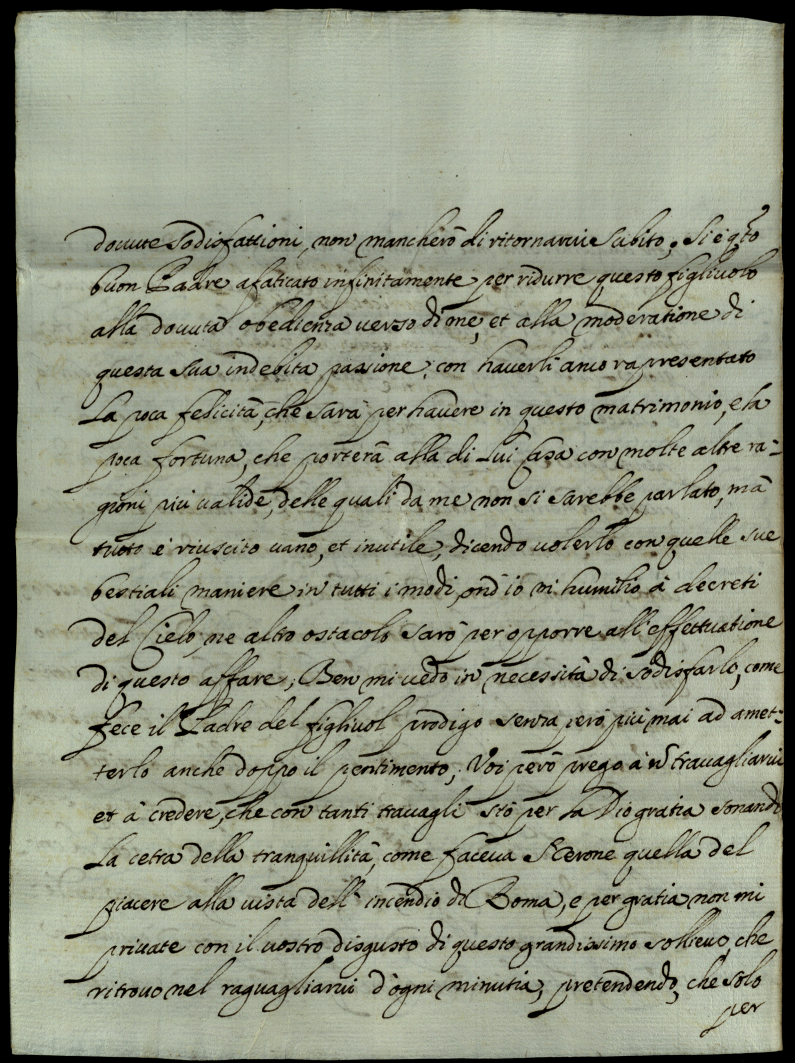 dovute sodisfattioni, non mancherò di ritornarvi subito; Si è q.sto
buon Padre afaticato infinitamente per ridurre questo figlivolo
alla dovuta obedienza verso di me, et alla moderatione di
questa sua indebita passione, con haverli anco rapresentato
la poca felicità, che sarà per havere in questo matrimonio, e la
poca fortuna, che porterà alla di lui Casa con molte altre ra-
gioni più valide, delle quali da me non si sarebbe parlato, mà
tutto è riuscito vano, et inutile, dicendo volerlo con quelle sue
bestiali maniere in tutti i modi, ond'io mi humilio à decreti
del Cielo, ne altro ostacolo sarò per opporre all'effettuatione
di questo affare; Ben mi vedo in necessità di sodisfarlo, come
fece il Padre del figlivol prodigo senza però più mai ad amet-
terlo anche doppo il pentimento; Voi però prego à n travagliarvi
et à credere, che con tanti travagli stò per la Dio gratia sonando
la cetra della tranquillità, come faceva Nerone quella del
piacere alla vista dell'incendio di Roma, e per gratia non mi
private con il vostro disgusto di questo grandissimo sollievo, che
ritrovo nel raguagliarvi d'ogni minutia, pretendendo, che solo
per